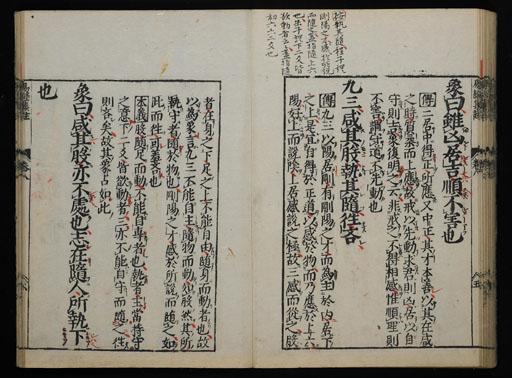 按執其隨程子謂
剛陽之才感於所說
而隨之蓋指隨上六
也朱子謂下二爻皆
欲動者云云蓋指隨
初六六二爻也
象曰雖凶居吉順不害也
傳二居中得正所應又中正其才本善以其在咸
之時質柔而上應故戒以先動求君則凶居以自
守則吉象復明之云非戒之不得相感惟順理則
不害謂守道不先動也
九三咸其股執其隨往吝
傳九三以陽居剛有剛陽之才而為主於内居下
之上是宜自得於正道以感於物而乃應於上六
陽好上而說陰上居感說之極故三感而從之股
者在身之下足之上不能自由隨身而動者也故
以為象言九三不能自主隨物而動如股然其所
執守者隨於物也剛陽之才感於所說而隨之如
此而往可羞吝也
本義股隨足而動不能自專者也執者主當持守
之意下二爻皆欲動者三亦不能自守而隨之往
則吝矣故其象占如此
象曰咸其股亦不處也志在隨人所執下
也